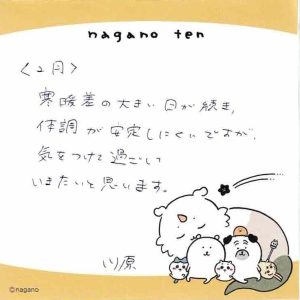 nagano ten
〈2月〉
寒暖差の大きい日が続き、
体調が安定しにくいですが、
気をつけて過ごして
いきたいと思います。
川原
©nagano